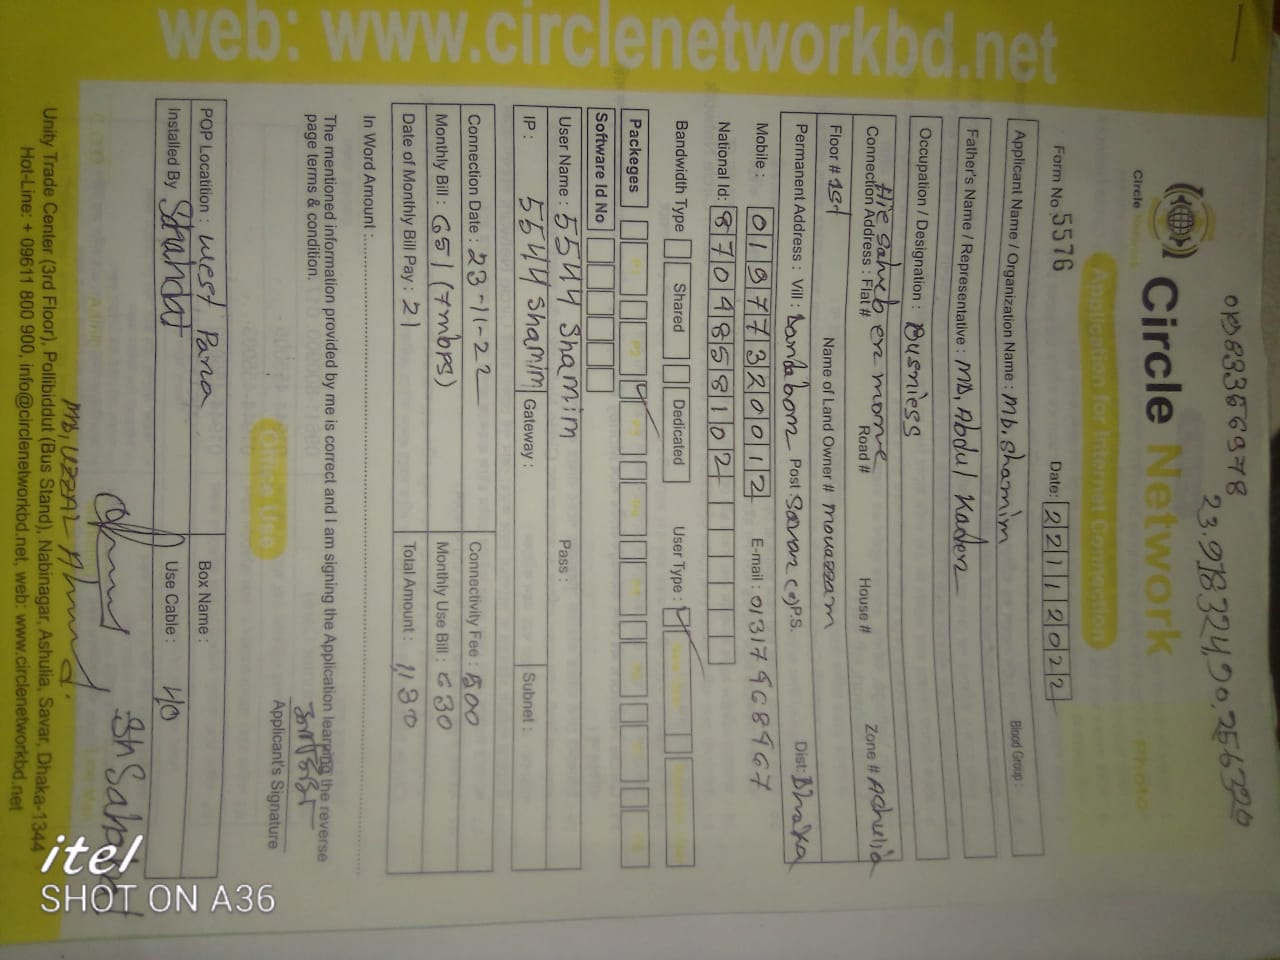 23.918324,90.256320
Circle Network
Circle
Application for Internet Connection
Photo
Form No. 5576 Date: 22112022
Applicant Name / Organization Name : Md. Shamim Blood Group :
Father's Name / Representative : MD, Abdul Kader
Occupation / Designation : Busniess
Connection Address : Flat# Road # House # Zone # Ashulia
Floor # 1st Name of Land Owner # mouazzam
Permanent Address : Vill : Post P.S. Dist: Dhaka
Mobile : 01977320012 E-mail : 01317968967
National Id: 8704858102
Bandwidth Type Shared Dedicated User Type :
Packeges
Software Id No
User Name : 5544 Shamim Pass :
IP : 5544 Shamim Gateway : Subnet :
Connection Date : 23-11-22 Connectivity Fee : 500
Monthly Bill : 651 (7mbps) Monthly Use Bill : 630
Date of Monthly Bill Pay : 21 Total Amount : 1130
In Word Amount :
The mentioned information provided by me is correct and I am signing the Application learning the reverse
page terms & condition.
Applicant's Signature
Office Use
POP Locatilion : West Para Box Name :
Installed By Shahdat Use Cable : 40
MD, UZZAL Ahmed.
Unity Trade Center (3rd Floor), Pollibiddut (Bus Stand), Nabinagar, Ashulia, Savar, Dhaka-1344
Hot-Line: + 09611 800 900, info@circlenetworkbd.net, web: www.circlenetworkbd.net
web: www.circlenetworkbd.net
itel
SHOT ON A36